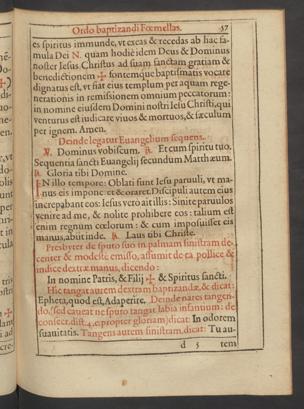 Ordo baptizandi Fœmellas. 37
es spiritus immunde, vt exeas & recedas ab hac fa-
mula Dei N. quam hodie idem Deus & Dominus
noster Iesus Christus ad suam sanctam gratiam &
benedictionem ✠ fontemque baptismatis vocare
dignatus est, vt fiat eius templum per aquam rege-
nerationis in remissionem omnium peccatorum:
in nomine eiusdem Domini nostri Iesu Christi, qui
venturus est iudicare viuos & mortuos, & sæculum
per ignem. Amen.
Deinde legatur Euangelium sequens.
℣. Dominus vobiscum. ℟. Et cum spiritu tuo.
Sequentia sancti Euangelij secundum Matthæum.
℟. Gloria tibi Domine.
IN illo tempore: Oblati sunt Iesu paruuli, vt ma-
nus eis imponeret & oraret. Discipuli autem eius
increpabant eos: Iesus vero ait illis: Sinite paruulos
venire ad me, & nolite prohibere eos: talium est
enim regnum cœlorum: & cum imposuisset eis
manus, abijt inde. ℟. Laus tibi Christe.
Presbyter de sputo suo in palmam sinistram de-
center & modeste emisso, assumit de ea pollice &
indice dextræ manus, dicendo:
In nomine Patris, & Filij ✠ & Spiritus sancti.
Hic tangat aurem dextram baptizandæ, & dicat:
Epheta, quod est, Adaperire. Deinde nares tangen-
do, (sed caueat ne sputo tangat labia infantium: de
consecr. dist. 4. c. propter gloriam) dicat: In odorem
suauitatis. Tangens aurem sinistram, dicat: Tu au-
d 5 tem